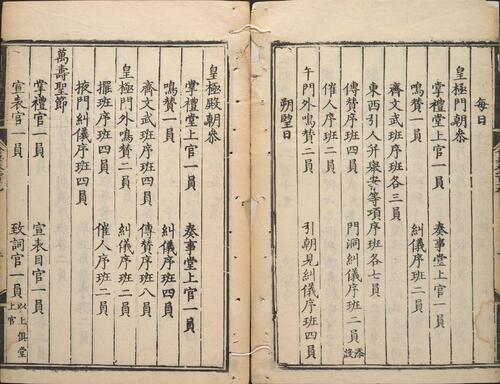 每日
皇極門朝參
掌禮堂上官一員 奏事堂上官一員
鳴贊一員 糾儀序班二員
齊文武班序班各三員
東西引人并舉案等項序班各七員
傳贊序班四員 門洞糾儀序班二員添設
催人序班二員
午門外鳴贊二員 引朝見糾儀序班四員
朔望日
皇極殿朝參
掌禮堂上官一員 奏事堂上官一員
鳴贊一員 糾儀序班四員
齊文武班序班四員 傳贊序班八員
皇極門外鳴贊二員 糾儀序班二員
擺班序班四員 催人序班二員
掖門糾儀序班四員
萬壽聖節
掌禮官一員 宣表目官一員
宣表官一員 致詞官一員以上俱堂上官